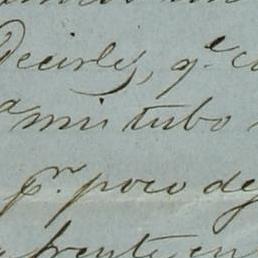 Decirles, q.e
mui tubo
p.r poco de
frente en